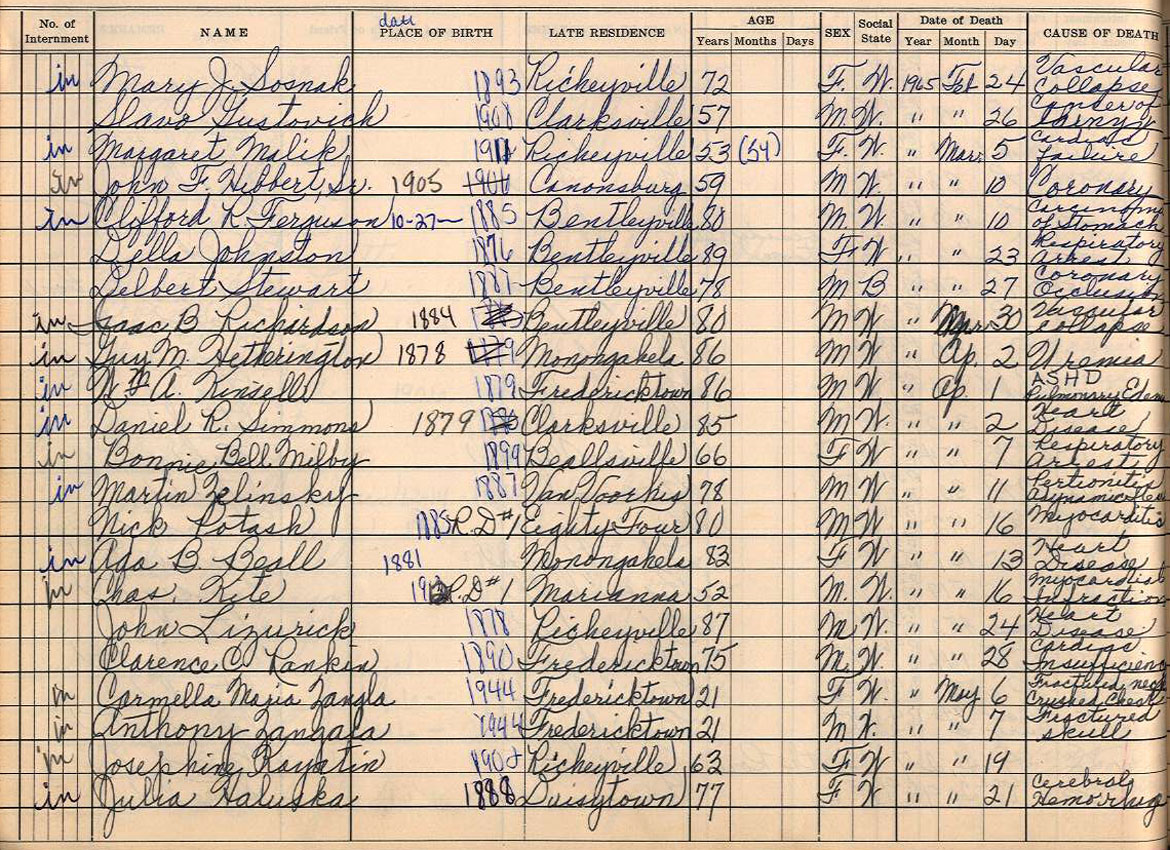 No. of Internment NAME date PLACE OF BIRTH LATE RESIDENCE AGE Years Months Days SEX Social State Date of Death Year Month Day CAUSE OF DEATH
in Mary J. Sosnak 1893 Richeyville 72 F. W. 1965 Feb 24 Vascular Collapse
Slavo Gustovich 1908 Clarksville 57 M W. " " 26 Cancer of larnyx
in Margaret Malik 1911 Richeyville 53 (54) F. W. " Mar. 5 Cardiac failure
in John F. Hibbert, Sr. 1905 Canonsburg 59 M W. " " 10 Coronary
in Clifford R. Ferguson 10-27- 1885 Bentleyville 80 M W. " " 10 Carcinoma of Stomach
Della Johnston 1876 Bentleyville 89 F W " " 23 Respiratory arrest
Delbert Stewart 1887 Bentleyville 78 M B " " 27 Coronary Occlusion
in Isaac B Richardson 1884 Bentleyville 80 M W " Mar. 30 Vascular collapse
in Guy M. Hetherington 1878 Monongahela 86 M W " Ap. 2 Uremia
in Wm A. Kinsell 1879 Fredericktown 86 M W " Ap. 1 ASHD Pulmonary Edema
in Daniel R. Simmons 1879 Clarksville 85 M W. " " 2 Heart Disease
in Bonnie Bell Milby 1899 Beallsville 66 F W " " 7 Respiratory Arrest
in Martin Zelinsky 1887 Van Voorhis 78 M W " " 11 Pertionitis
Nick Potash 1885 R.D #1 Eighty Four 80 M W " " 16 Myocarditis
in Ada B. Beall 1881 Monongahela 83 F W " " 13 Heart Disease
in Chas. Kite R.D #1 Marianna 52 M. W. " " 16 Myocardial Infraction
John Lizurick 1878 Richeyville 87 M W. " " 24 Heart Disease
Clarence C. Rankin 1890 Fredericktown 75 M. W. " " 28 Cardiac Insufficienc
in Carmella Maria Zangla 1944 Fredericktown 21 F W. " May 6 Fractured neck Crushed Chest
in Anthony Zangala 1944 Fredericktown 21 M W. " " 7 Fractured skull
in Josephine Raystin Richeyville 63 F W " " 19
in Julia Haluska 1888 Daisytown 77 F W " " 21 Cerebral Hemorrhage